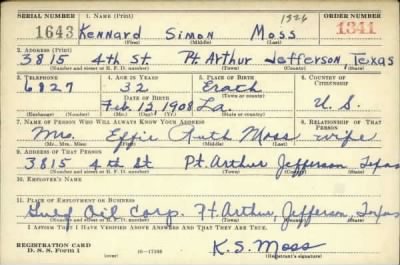 SERIAL NUMBER 1. NAME (Print) 1326 ORDER NUMBER
1643 Kennard Simon Moss 1341
(First) (Middle) (Last)
2. ADDRESS (Print)
3815 4th St. Pt. Arthur Jefferson Texas
(Number and street or R. F. D. number) (Town) (County) (State)
3. TELEPHONE 4. AGE IN YEARS 5. PLACE OF BIRTH 6. COUNTRY OF CITIZENSHIP
6827 32 Erath
DATE OF BIRTH (Town or county)
Feb. 12, 1908 La. U. S.
(Exchange) (Number) (Mo.) (Day) (Yr.) (State or country)
7. NAME OF PERSON WHO WILL ALWAYS KNOW YOUR ADDRESS 8. RELATIONSHIP OF THAT PERSON
Mrs. Effie Ruth Moss wife
(Mr., Mrs., Miss) (First) (Middle) (Last)
9. ADDRESS OF THAT PERSON
3815 4th St Pt. Arthur Jefferson Texas
(Number and street or R. F. D. number) (Town) (County) (State)
10. EMPLOYER'S NAME
11. PLACE OF EMPLOYMENT OR BUSINESS
Gulf Oil Corp. Pt Arthur, Jefferson, Texas
(Number and street or R. F. D. number) (Town) (County) (State)
I AFFIRM THAT I HAVE VERIFIED ABOVE ANSWERS AND THAT THEY ARE TRUE.
REGISTRATION CARD
D. S. S. Form 1 (over) 16—17105 K. S. Moss
(Registrant's signature)